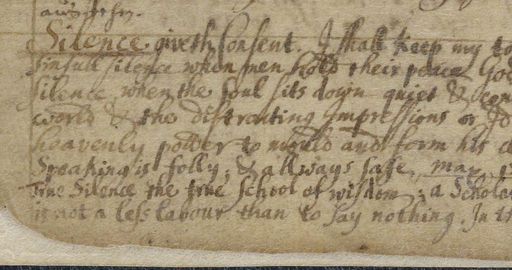 Silence. giveth Consent. I shall keep my to
sinfull silence when men hold their peace God
silence when the soul sits down quiet &
world & the distracting Impressions or
heavenly power to mould and form his
Speaking is folly, & allways safe, max.
True Silence the true school of wisdom; a Schola
is not a less labour than to say nothing. In th